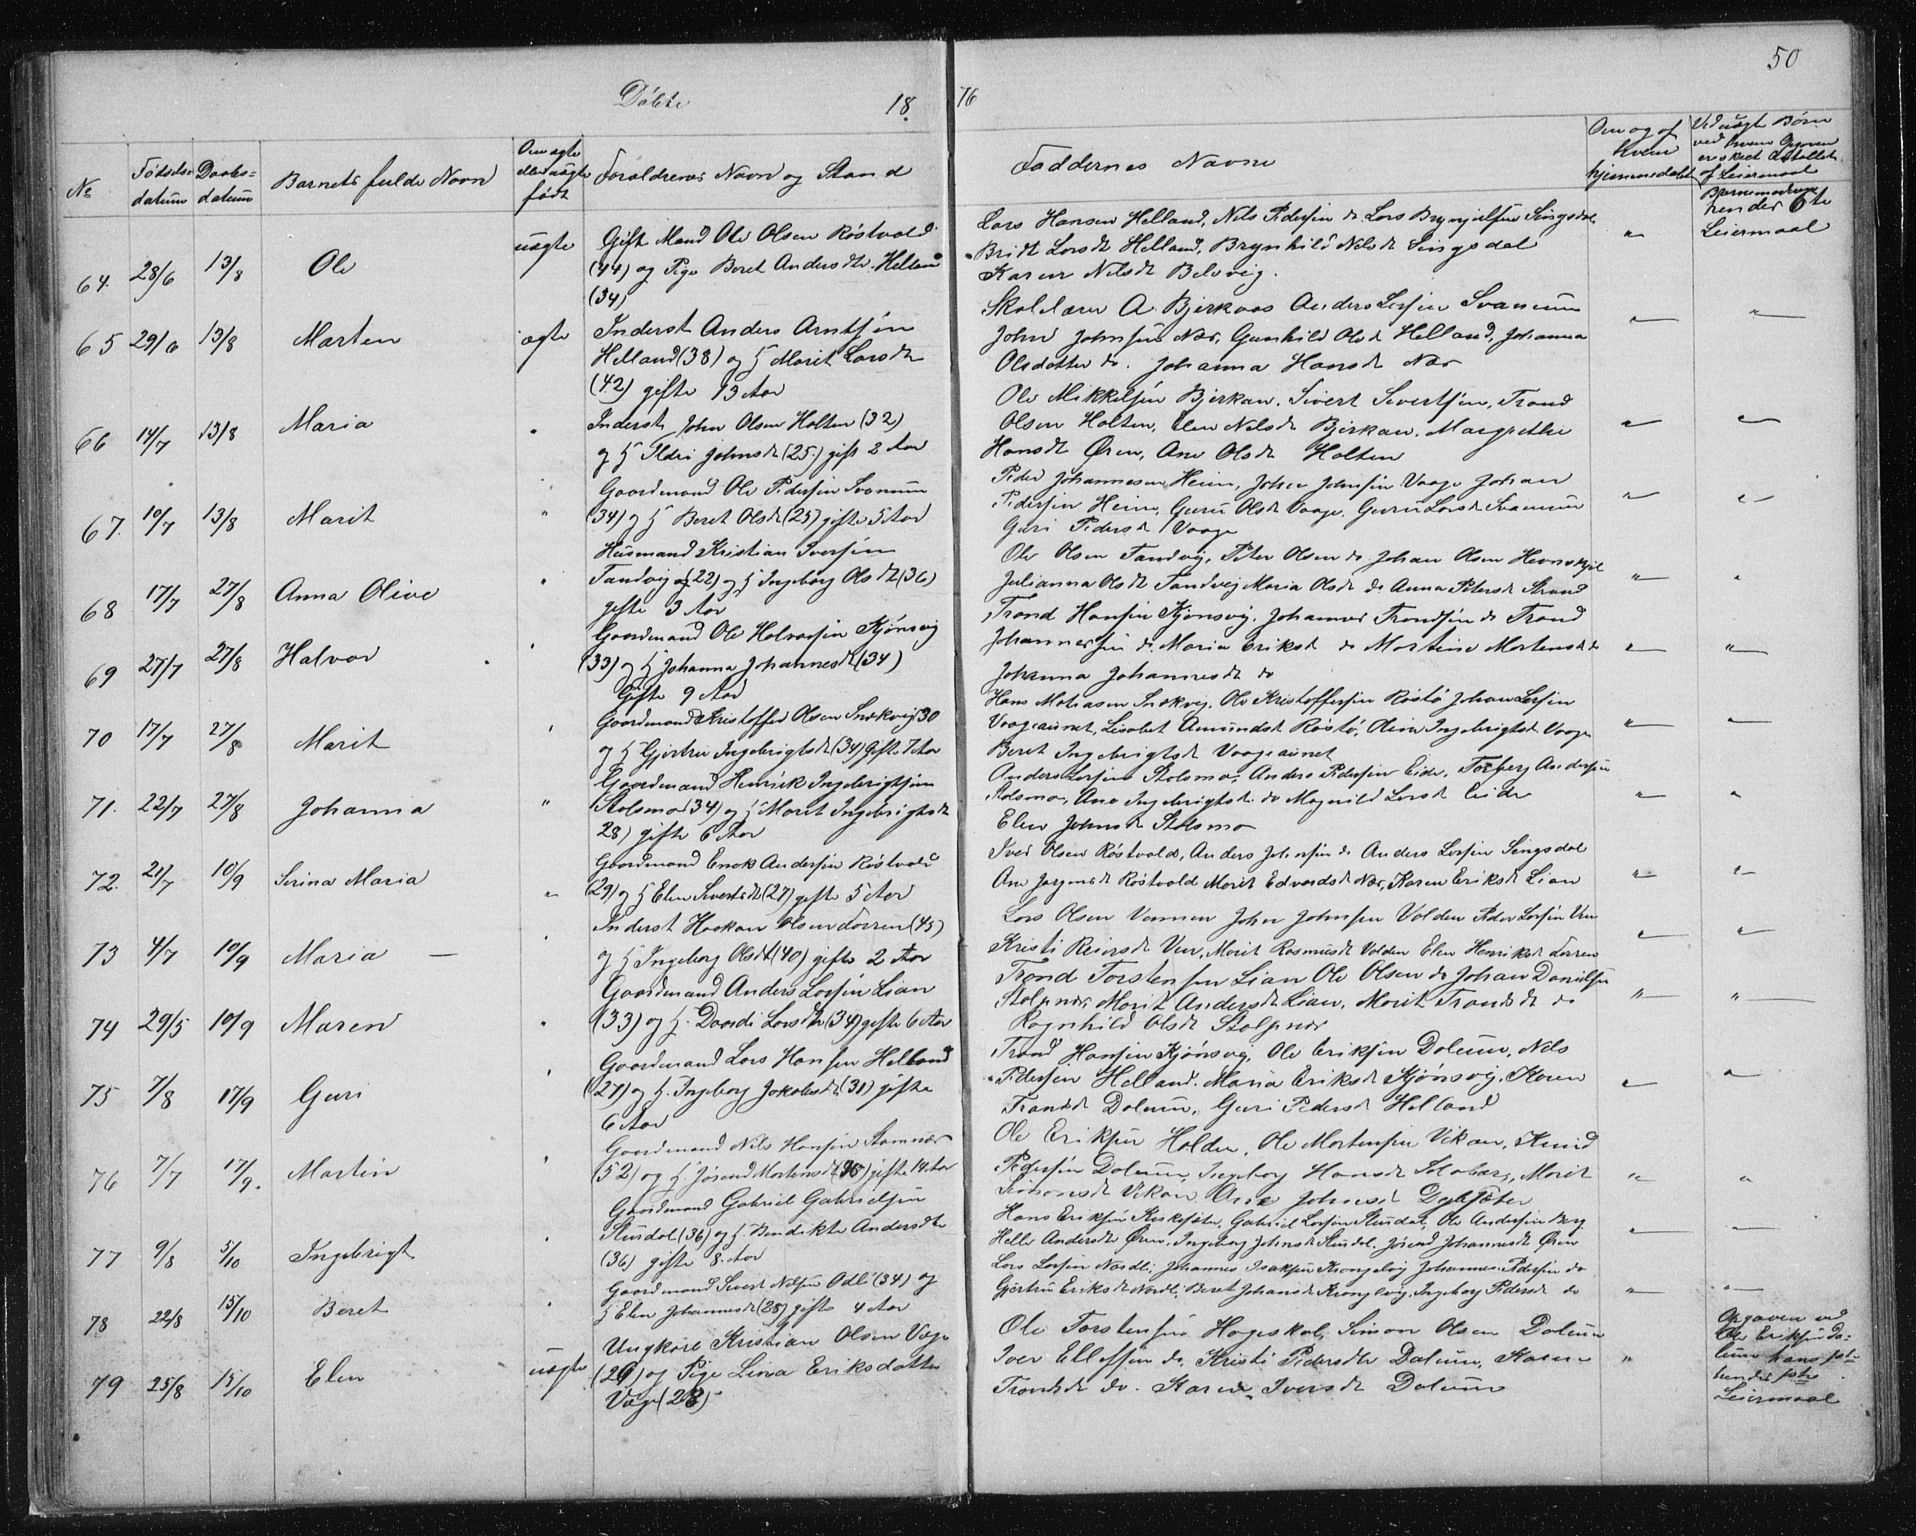 50
Døbte 18 76
No Fødselsdatum Daabsdatum Barnets fulde Navn Om ægte eller uægte født Forældrenes Navn og Stand
Faddernes Navne Om og af hvem hjemmedøbt Ved uægte Børn ved hvem Opgaven er skeet Antallet af Leiermaal
64. 28/6 13/8 Ole uægte Gift Mand Ole Olsen Røstvold
(44) og Pige Beret Andersdtr Helland
(34)
Lars Hansen Helland, Nils Pedersen do Lars Brynjulfsen Singsdal
Brit Larsdt Helland, Brynhild Nilsdt Singsdal
Karen Nilsdt Belsvig.
" Barnemoderen hendes 6te Leiermaal
65 29/6 13/8 Morten ægte Inderst Anders Arntsøn
Helland (38) og H Marit Larsdtr
(42) gifte 13 Aar
Skolelærer A. Bjerkaas Anders Larsen Svanem
John Johnsen Næs, Gunhild Olsdt Helland, Johanna
Olsdatter do. Johanna Hansdt Næs
" "
66 14/7 13/8 Maria " Inderst John Olsen Holten (32)
og H Ildri Johnsdt (25) gift 2 Aar
Ole Mikkelsøn Bjerkan, Sivert Sivertsøn, Trond
Olsen Holten, Elen Nilsdt Bjerkan, Margrethe
Hansdt Øren, Ane Olsdt Holten
" "
67. 10/7 13/8 Marit " Gaardmand Ole Pedersen Svanem
(34) og H Beret Olsdt (25) gifte 5 Aar
Peder Johannesen Heim, Johan Johnsen Vaage Johan
Pedersen Heim, Guru Olsdt Vaage, Guru Larsdt Svanem
Guri Pedersdt Vaage
" "
68 17/7 27/8 Anna Olive " Husmand Kristian Iversen
Tandvig (22) og H Ingeborg Olsdt (36)
gifte 3 Aar
Ole Olsen Tandvig, Peter Olsen do Johan Olsen Hevnskjel
Julianna Olsdt Tandvig Maria Olsdt do Anna Petersdt Strand
" "
69 27/7 27/8 Halvor " Gaardmand Ole Halvorsen Kjønsvig
(33) og H Johanna Johannesdt (34)
Gifte 9 Aar
Trond Hansen Kjønsvig, Johannes Trondsøn do Trond
Johannessen do Maria Eriksdt do Martine Mortensdt do
Johanna Johannesdt do
" "
70 17/7 27/8 Marit " Gaardmand Kristoffer Olsen Snekvig 30
og H Gjertru Ingebrigtsdt (34) Gifte 7 Aar
Hans Mathiasen Snekvig, Ole Kristoffersen Røstø Johan Larsen
Vaageaunet, Lisabet Amundsdt Røstø, Oline Ingebrigtsdt Vaage
Beret Ingebrigtsdt Vaageaunet
" "
71. 22/7 27/8 Johanna " Gaardmand Henrik Ingebrigtsen
Stolsmo (34) og H Marit Ingebrigtsdt
28) gifte 6 Aar
Anders Larsen Stolsmo, Anders Pedersen Eide, Torberg Andersen
Stolsmo, Ane Ingebrigtsdt do Magnild Larsdt Eide
Elen Johnsdt Stolsmo
" "
72. 21/7 10/9 Serina Maria " Gaardmand Enok Andersen Røstvold
(29) og H Elen Sivertsdt (27) gifte 5 Aar
Iver Olsen Røstvold, Anders Johnsen do Anders Larsen Sengsdal
Ane Jørgensdt Røstvold Marit Edvardsdt Næs, Karen Eriksdt Lian
" "
73 4/7 10/9 Maria – " Inderst Haakon Olsen Forren (45)
og H Ingeborg Olsdt (40) gifte 2 Aar
Lars Olsen Vennen John Johnsen Volden Peter Larsen Ven
Kristi Reiersdt Ven, Marit Rasmusdt Volden Elen Henriksdt Forren
" "
74 29/5 10/9 Maren " Gaardmand Anders Larsen Lian
(33) og H. Dordi Larsdtr (34) gifte 6 Aar
Trond Torstensen Lian Ole Olsen do Johan Danielsen
Stolpnæs, Marit Andersdt Lian, Marit Trondsdt do
Ragnhild Olsdt Stolpnæs
" "
75 7/8 17/9 Guri " Gaardmand Lars Hansen Helland
(27) og H. Ingeborg Jakobsdt (31) gifte
6 Aar
Trond Hansen Kjønsvig, Ole Eriksen Dolum, Nils
Pedersen Helland. Maria Eriksdt Kjønsvig, Karen
Trondsdt Dolum, Guri Pedersdt Helland
" "
76 7/7 17/9. Martin " Gaardmand Nils Hansen Stamnæs
(52) og H Jørend Mortensdt (38) gifte 14 Aar
Ole Eriksen Holden, Ole Mortensen Vikan, Knud
Pedersøn Dolum, Ingeborg Hansdt Selabærg, Marit
Simonsdt Vikan Ane Johnsdt
" "
77 9/8 5/10 Ingebrigt " Gaardmand Gabriel Gabrielsen
Stusdal (36) og H. Bendikte Andersdtr
(36) gifte 8 Aar
Hans Eriksøn Kirksæter, Gabriel Larsen Stusdal, Ole Andersen Berg
Helle Andersdt Øren, Ingeborg Johnsdt Stusdal, Jørend Johannesdt Øren
" "
78 22/8 15/10 Beret " Gaardmand Sivert Nilsen Odli (34) og
H Elen Johannesdt (28) gifte 4 Aar
Lars Larsen Nordli, Johannes Isaksen Krongelvig Johannes Pedersen do
Gjertru Eriksdt Nordli, Beret Johansdt Krongelvig, Ingeborg Pedersdt do
" "
79 25/8 15/10 Elen uægte Ungkarl Kristian Olsen Vage
(26) og Pige Lina Eriksdatter
Vage (23)
Ole Torstensen Hageskal, Simon Olsen Dolum
Iver Ellefsen do, Kristi Pedersdtr Dolum, Karen
Trondsdt do. Karen Iversdt Dolum
" Opgaven ved
Ole Eriksen Do=
lum hans 1ste
hendes 1ste
Leiermaal